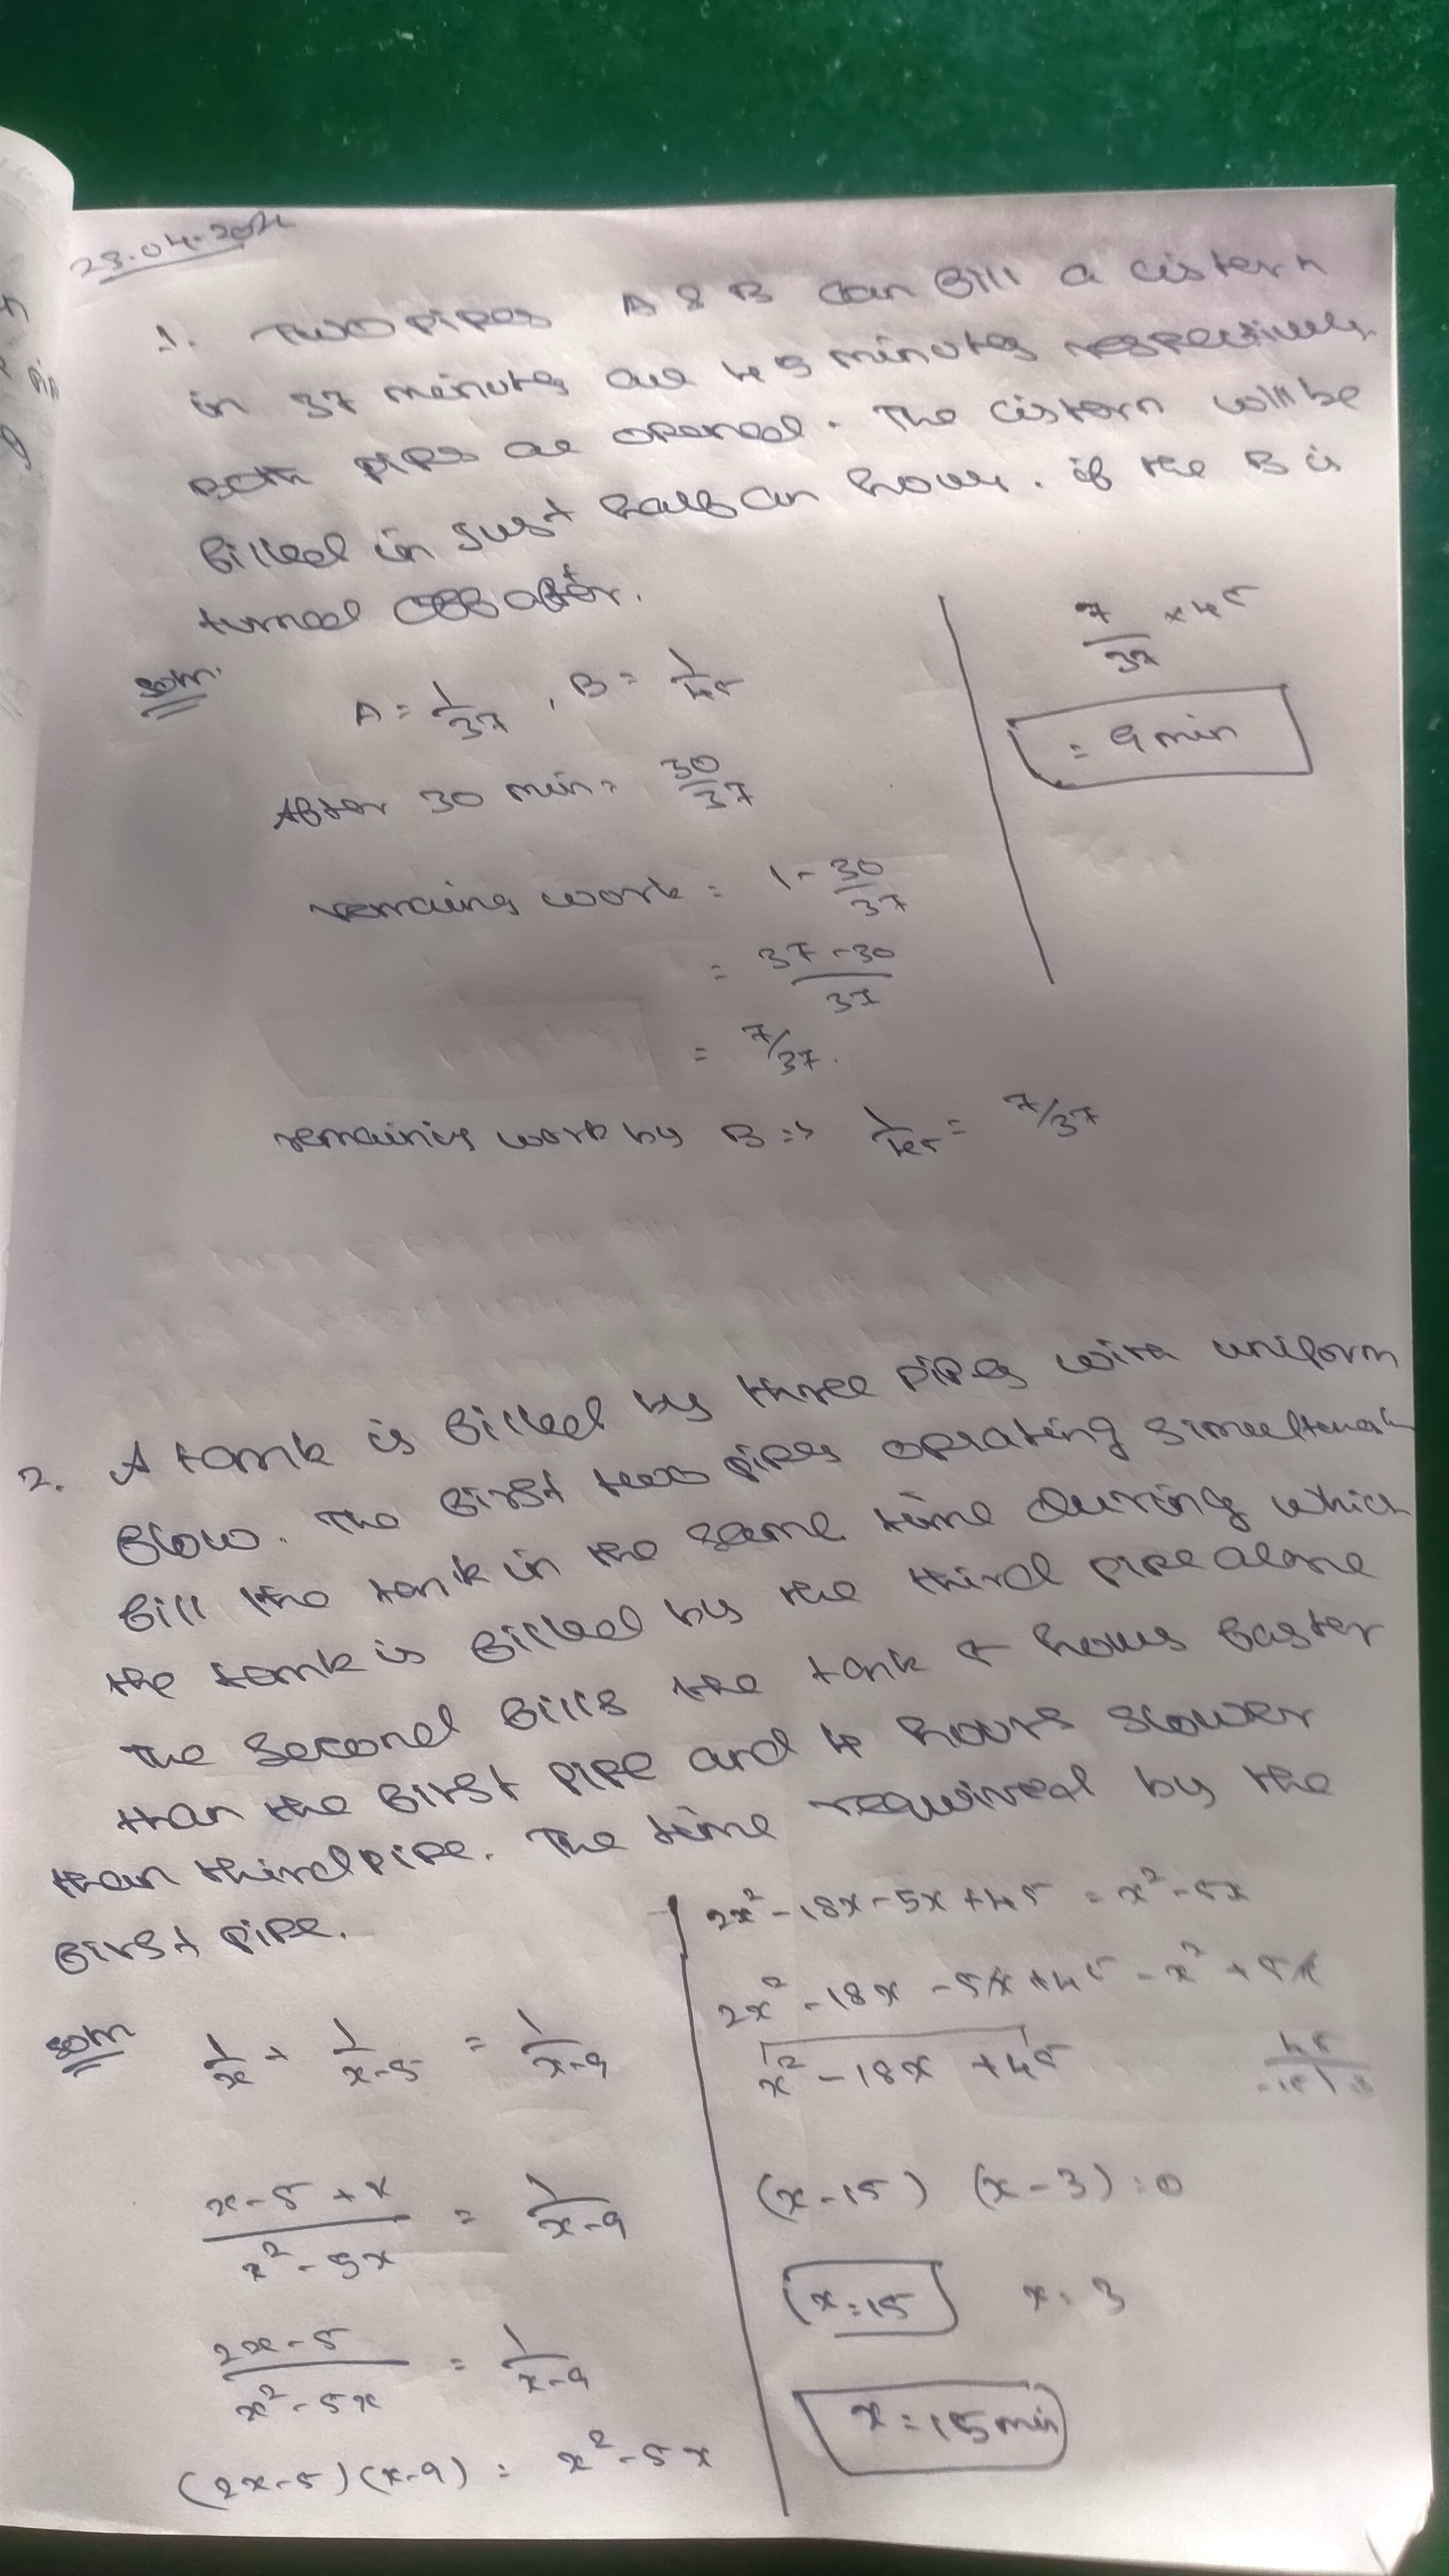 1. Two pipes A & B can fill a cistern
in 37 minutes are 45 minutes respectively.
Both pipes are opened. The cistern will be
filled in just half an hour. if the B is
turned off after.
soln.
A = 1/37 , B = 1/45
After 30 min = 30/37
remaing work = 1 - 30/37
= 37-30/37
= 7/37.
remaining work by B => 1/45 = 7/37
7/37 × 45
= 9 min
2. A tank is filled by three pipes with uniform
flow. The first two pipes oprating
fill the tank in the same time during which
the tank is filled by the third pipe alone
The second fills the tank 5 hours faster
than the first pipe and 4 hours slower
than third pipe. The time required by the
first pipe.
soln
1/x + 1/x-5 = 1/x-9
x-5+x/x²-5x = 1/x-9
2x-5/x²-5x = 1/x-9
(2x-5)(x-9) = x²-5x
2x²-18x-5x+45 = x²-5x
2x²-18x-5x+45-x²+5x
x²-18x+45
(x-15) (x-3)=0
x=15 x=3
x=15 min